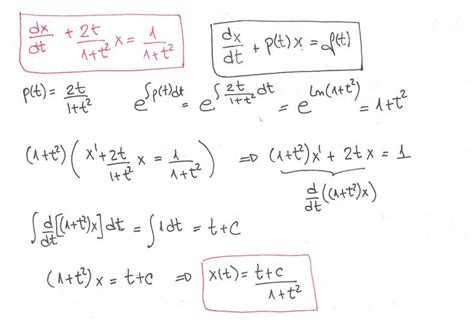 dx/dt + 2t/(1+t²) x = 1/(1+t²)    dx/dt + p(t) x = f(t)
p(t) = 2t/(1+t²)    e^(∫p(t)dt) = e^(∫2t/(1+t²) dt) = e^(Ln(1+t²)) = 1+t²
(1+t²) ( x' + 2t/(1+t²) x = 1/(1+t²) ) ⇒ (1+t²)x' + 2tx = 1
d/dt((1+t²)x)
∫ d/dt[(1+t²)x] dt = ∫1dt = t+c
(1+t²) x = t+c ⇒ x(t) = (t+c)/(1+t²)